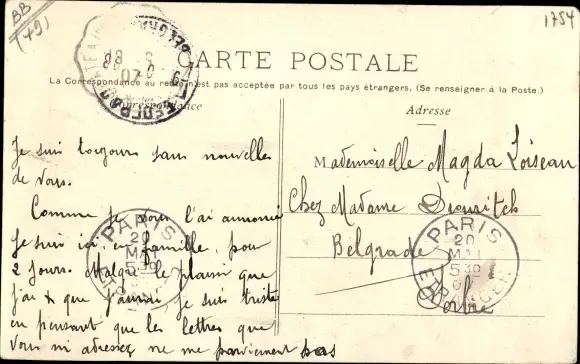 BB
(79)
1754
CARTE POSTALE
La Correspondance au recto n'est pas acceptée par tous les pays étrangers. (Se renseigner à la Poste.)
Correspondance
Adresse
Je suis toujours sans nouvelles
de vous.
Comme je vous l'ai annoncé
je suis ici en famille, pour
2 jours. Malgré le plaisir que
j'ai & que j'aurai je suis triste
en pensant que les lettres que
vous m'adressez ne me parviennent pas
Mademoiselle Magda Loiseau
Chez Madame
Belgrade
Serbie
PARIS
20
MAI
5 30
ETRANGER
PARIS
20
MAI
5 30
ETRANGER